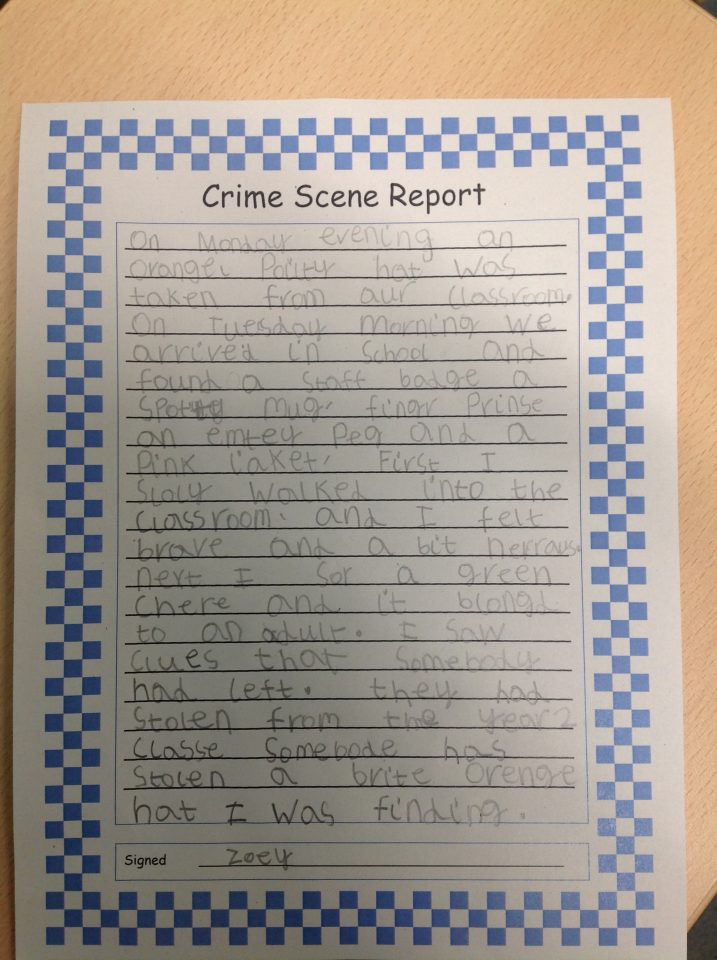 Crime Scene Report
On Monday evening an
orange Party hat was
taken from aur classroom.
On Tuesday morning we
arrived in School and
found a staff badge a
spotty mug, fingr Prinse
an emtey Peg and a
Pink Caket, First I
Sloly walked into the
classroom. and I felt
brave and a bit nerraus.
next I sor a green
chere and it blongd
to an adult. I saw
clues that somebody
had left. they had
stolen from the year 2
classe somebode has
stolen a brite orenge
hat I was finding.
Signed Zoey